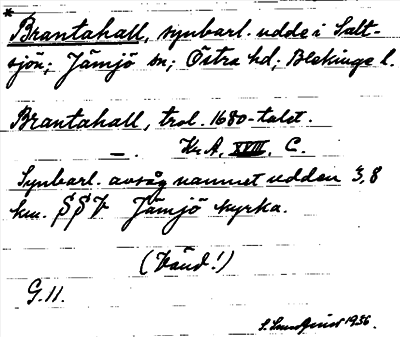 * Brantahall, synbarl. udde i Salt-
sjön; Jämjö sn; Östra hd; Blekinge l.
Brantahall, trol. 1680-talet.
—. Kr.A. XVIII. C.
Synbarl. avsåg namnet udden 3,8
km. SSV Jämjö kyrka.
(Känd!)
G. 11.
1936.